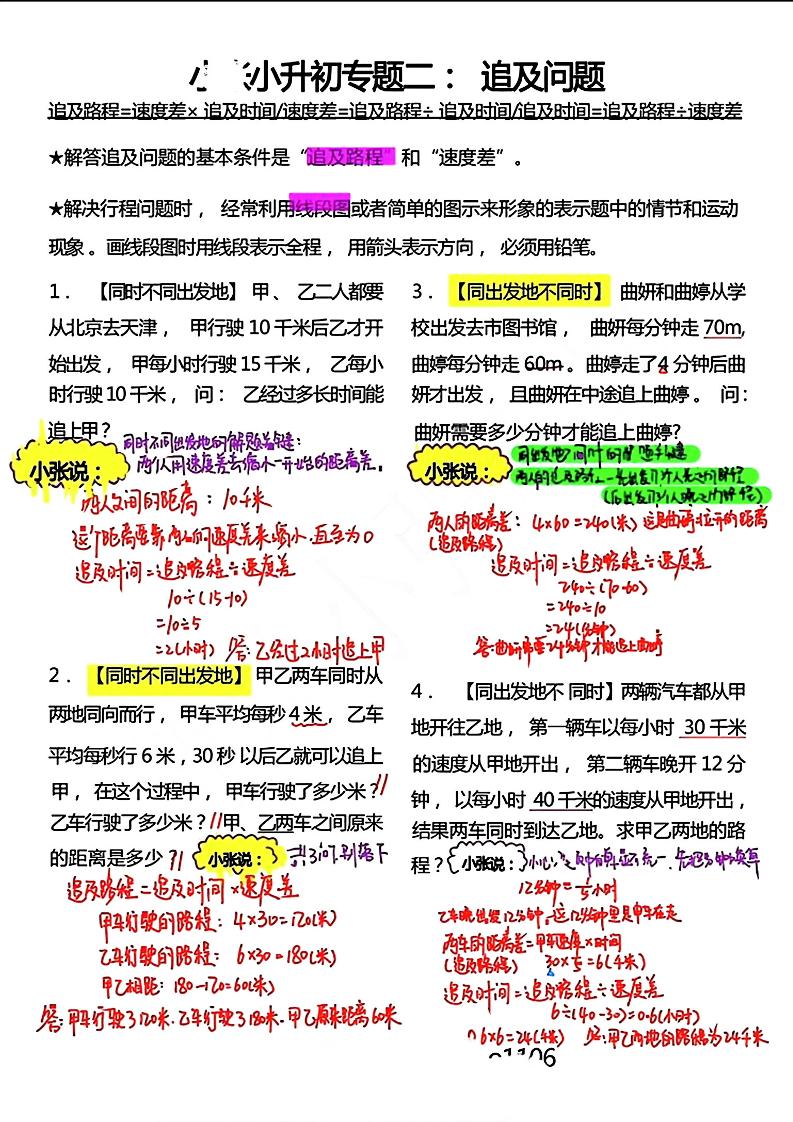 小 小升初专题二： 追及问题
追及路程=速度差× 追及时间/速度差=追及路程÷ 追及时间/追及时间=追及路程÷速度差
★解答追及问题的基本条件是“追及路程”和“速度差”。
★解决行程问题时， 经常利用线段图或者简单的图示来形象的表示题中的情节和运动
现象 。画线段图时用线段表示全程， 用箭头表示方向， 必须用铅笔。
1． 【同时不同出发地】 甲、 乙二人都要
从北京去天津， 甲行驶 10 千米后乙才开
始出发， 甲每小时行驶 15 千米， 乙每小
时行驶 10 千米， 问： 乙经过多长时间能
追上甲？
同时不同出发地的解题关键：
两人用速度差去缩小一开始的距离差。
小张说：
两人之间的距离：10千米
这个距离要靠两人的速度差来缩小.直至为0
追及时间=追及路程÷速度差
10÷(15-10)
=10÷5
=2(小时) 答：乙经过2小时追上甲
2． 【同时不同出发地】 甲乙两车同时从
两地同向而行， 甲车平均每秒 4 米， 乙车
平均每秒行 6 米，30 秒 以后乙就可以追上
甲， 在这个过程中， 甲车行驶了多少米？
乙车行驶了多少米？ 甲、乙两车之间原来
的距离是多少？ 小张说： 共3问,别落下
追及路程=追及时间×速度差
甲车行驶的路程：4×30=120(米)
乙车行驶的路程：6×30=180(米)
甲乙相距：180-120=60(米)
答：甲车行驶了120米.乙车行驶了180米.甲乙原来距离60米
3． 【同出发地不同时】 曲妍和曲婷从学
校出发去市图书馆， 曲妍每分钟走 70m,
曲婷每分钟走 60m 。曲婷走了4 分钟后曲
妍才出发， 且曲妍在中途追上曲婷 。 问：
曲妍需要多少分钟才能追上曲婷?
同出发地不同时的解题关键
小张说：
两人的距离差：4×60=240(米) 这是曲婷拉开的距离
(追及路程)
追及时间=追及路程÷速度差
240÷(70-60)
=240÷10
=24(分钟)
答：曲妍需要24分钟才能追上曲婷
4． 【同出发地不 同时】两辆汽车都从甲
地开往乙地， 第一辆车以每小时 30 千米
的速度从甲地开出， 第二辆车晚开 12 分
钟， 以每小时 40 千米的速度从甲地开出，
结果两车同时到达乙地。求甲乙两地的路
程？ 小张说：
12分钟=1/5小时
乙车晚出发12分钟,这12分钟里是甲车在走
两车的距离差=甲车速度×时间
(追及路程) 30×1/5=6(千米)
追及时间=追及路程÷速度差
6÷(40-30)=0.6(小时)
0.6×6=24(千米) 答：甲乙两地的路程为24千米